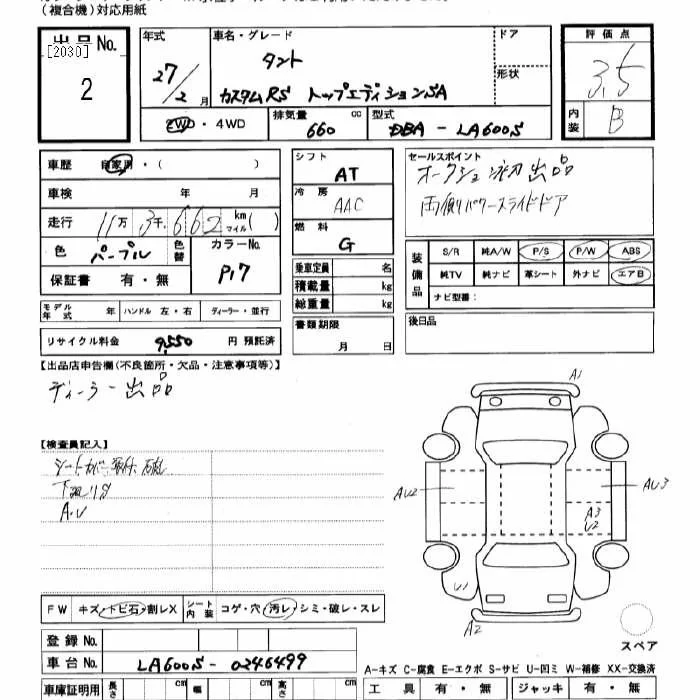 (複合機)対応用紙
出品No.
[2030]
2
年式
27/2月
車名・グレード
タント
カスタムRS トップエディションSA
ドア
形状
評価点
3.5
内装
B
2WD・4WD
排気量
660 cc
型式
DBA-LA600S
車歴 自家用・( )
車検 年 月
走行 11万 3千 662 km マイル( )
色 パープル
色替
カラーNo.
P17
保証書 有・無
シフト
AT
冷房
AAC
燃料
G
乗車定員 名
積載量 kg
総重量 kg
書類期限
月 日
セールスポイント
オークション初出品
両側パワースライドドア
装備品
S/R 純A/W P/S P/W ABS
純TV 純ナビ 革シート 外ナビ エアB
ナビ型番:
後日品
モデル年式 年 ハンドル 左・右 ディーラー・並行
リサイクル料金 9,550 円 預託済
【出品店申告欄(不良箇所・欠品・注意事項等)】
ディーラー出品
【検査員記入】
下廻りS
A.U
FW キズ・トビ石・割レX シート内装 コゲ・穴・汚レ・シミ・破レ・スレ
登録No.
車台No. LA600S-0246499
車庫証明用 長さ cm 幅 cm 高さ cm
A1
AU2
AU3
A3
U2
U1
A2
スペア
A-キズ C-腐食 E-エクボ S-サビ U-凹ミ W-補修 XX-交換済
工具 有・無 ジャッキ 有・無